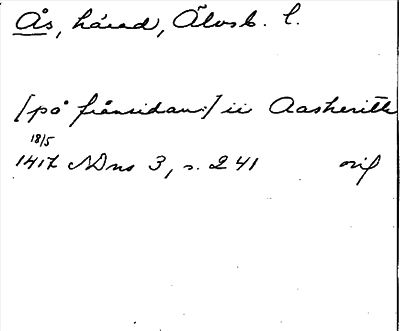 Ås, härad, Älvsb. l.
[på frånsidan:] ii Aasheritte
18/5
1417 NDns 3, s. 241 orig